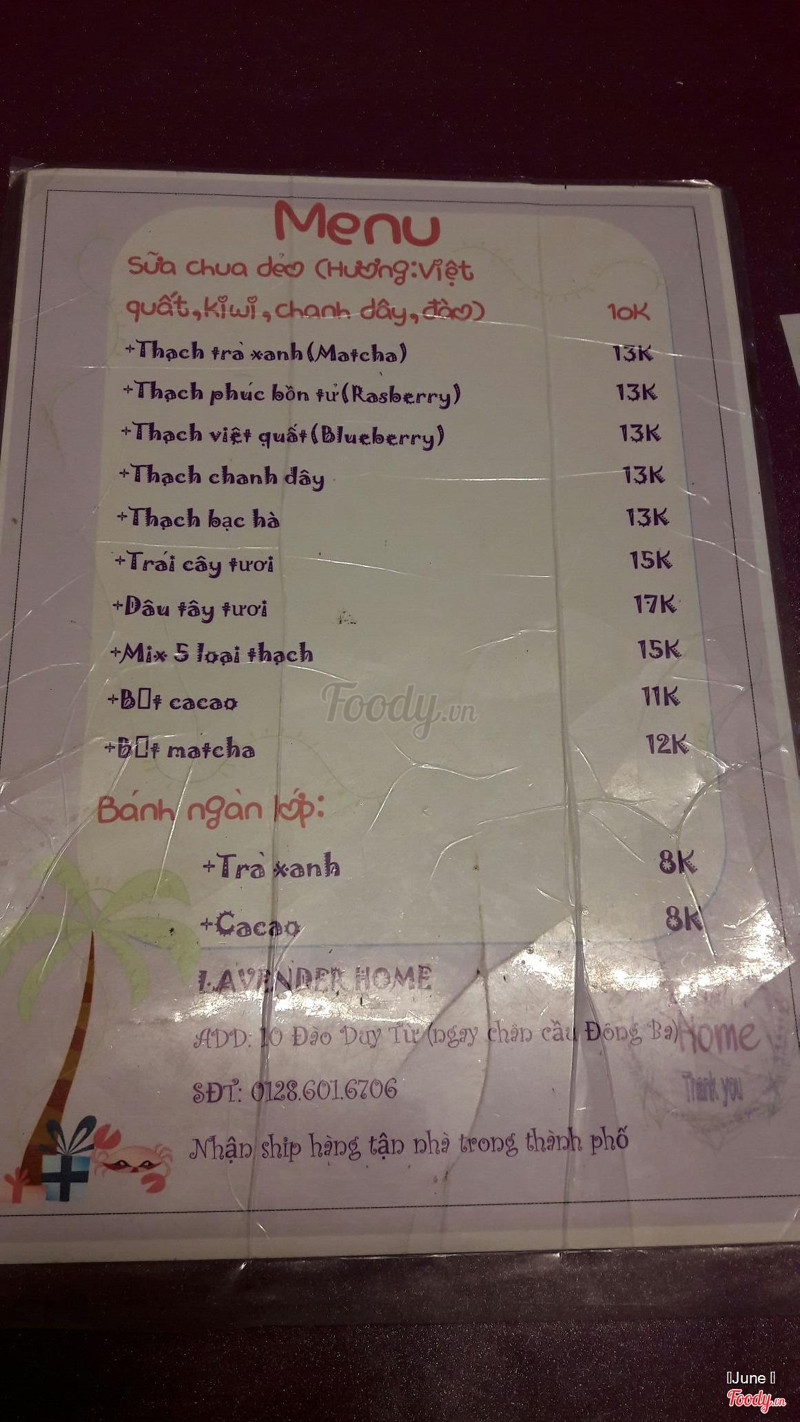 Menu
Sữa chua dẻo (Hương:Việt
quất,kiwi,chanh dây,đào) 10K
+Thạch trà xanh(Matcha) 13K
+Thạch phúc bồn tử(Rasberry) 13K
+Thạch việt quất(Blueberry) 13K
+Thạch chanh dây 13K
+Thạch bạc hà 13K
+Trái cây tươi 15K
+Dâu tây tươi 17K
+Mix 5 loại thạch 15K
Foody.vn
+B□t cacao 11K
+B□t matcha 12K
Bánh ngàn lớp:
+Trà xanh 8K
+Cacao 8K
LAVENDER HOME
ADD: 10 Đào Duy Từ (ngay chân cầu Đông Ba)
Home
Thank you
SĐT: 0128.601.6706
Nhận ship hàng tận nhà trong thành phố
□June □
Foody.vn